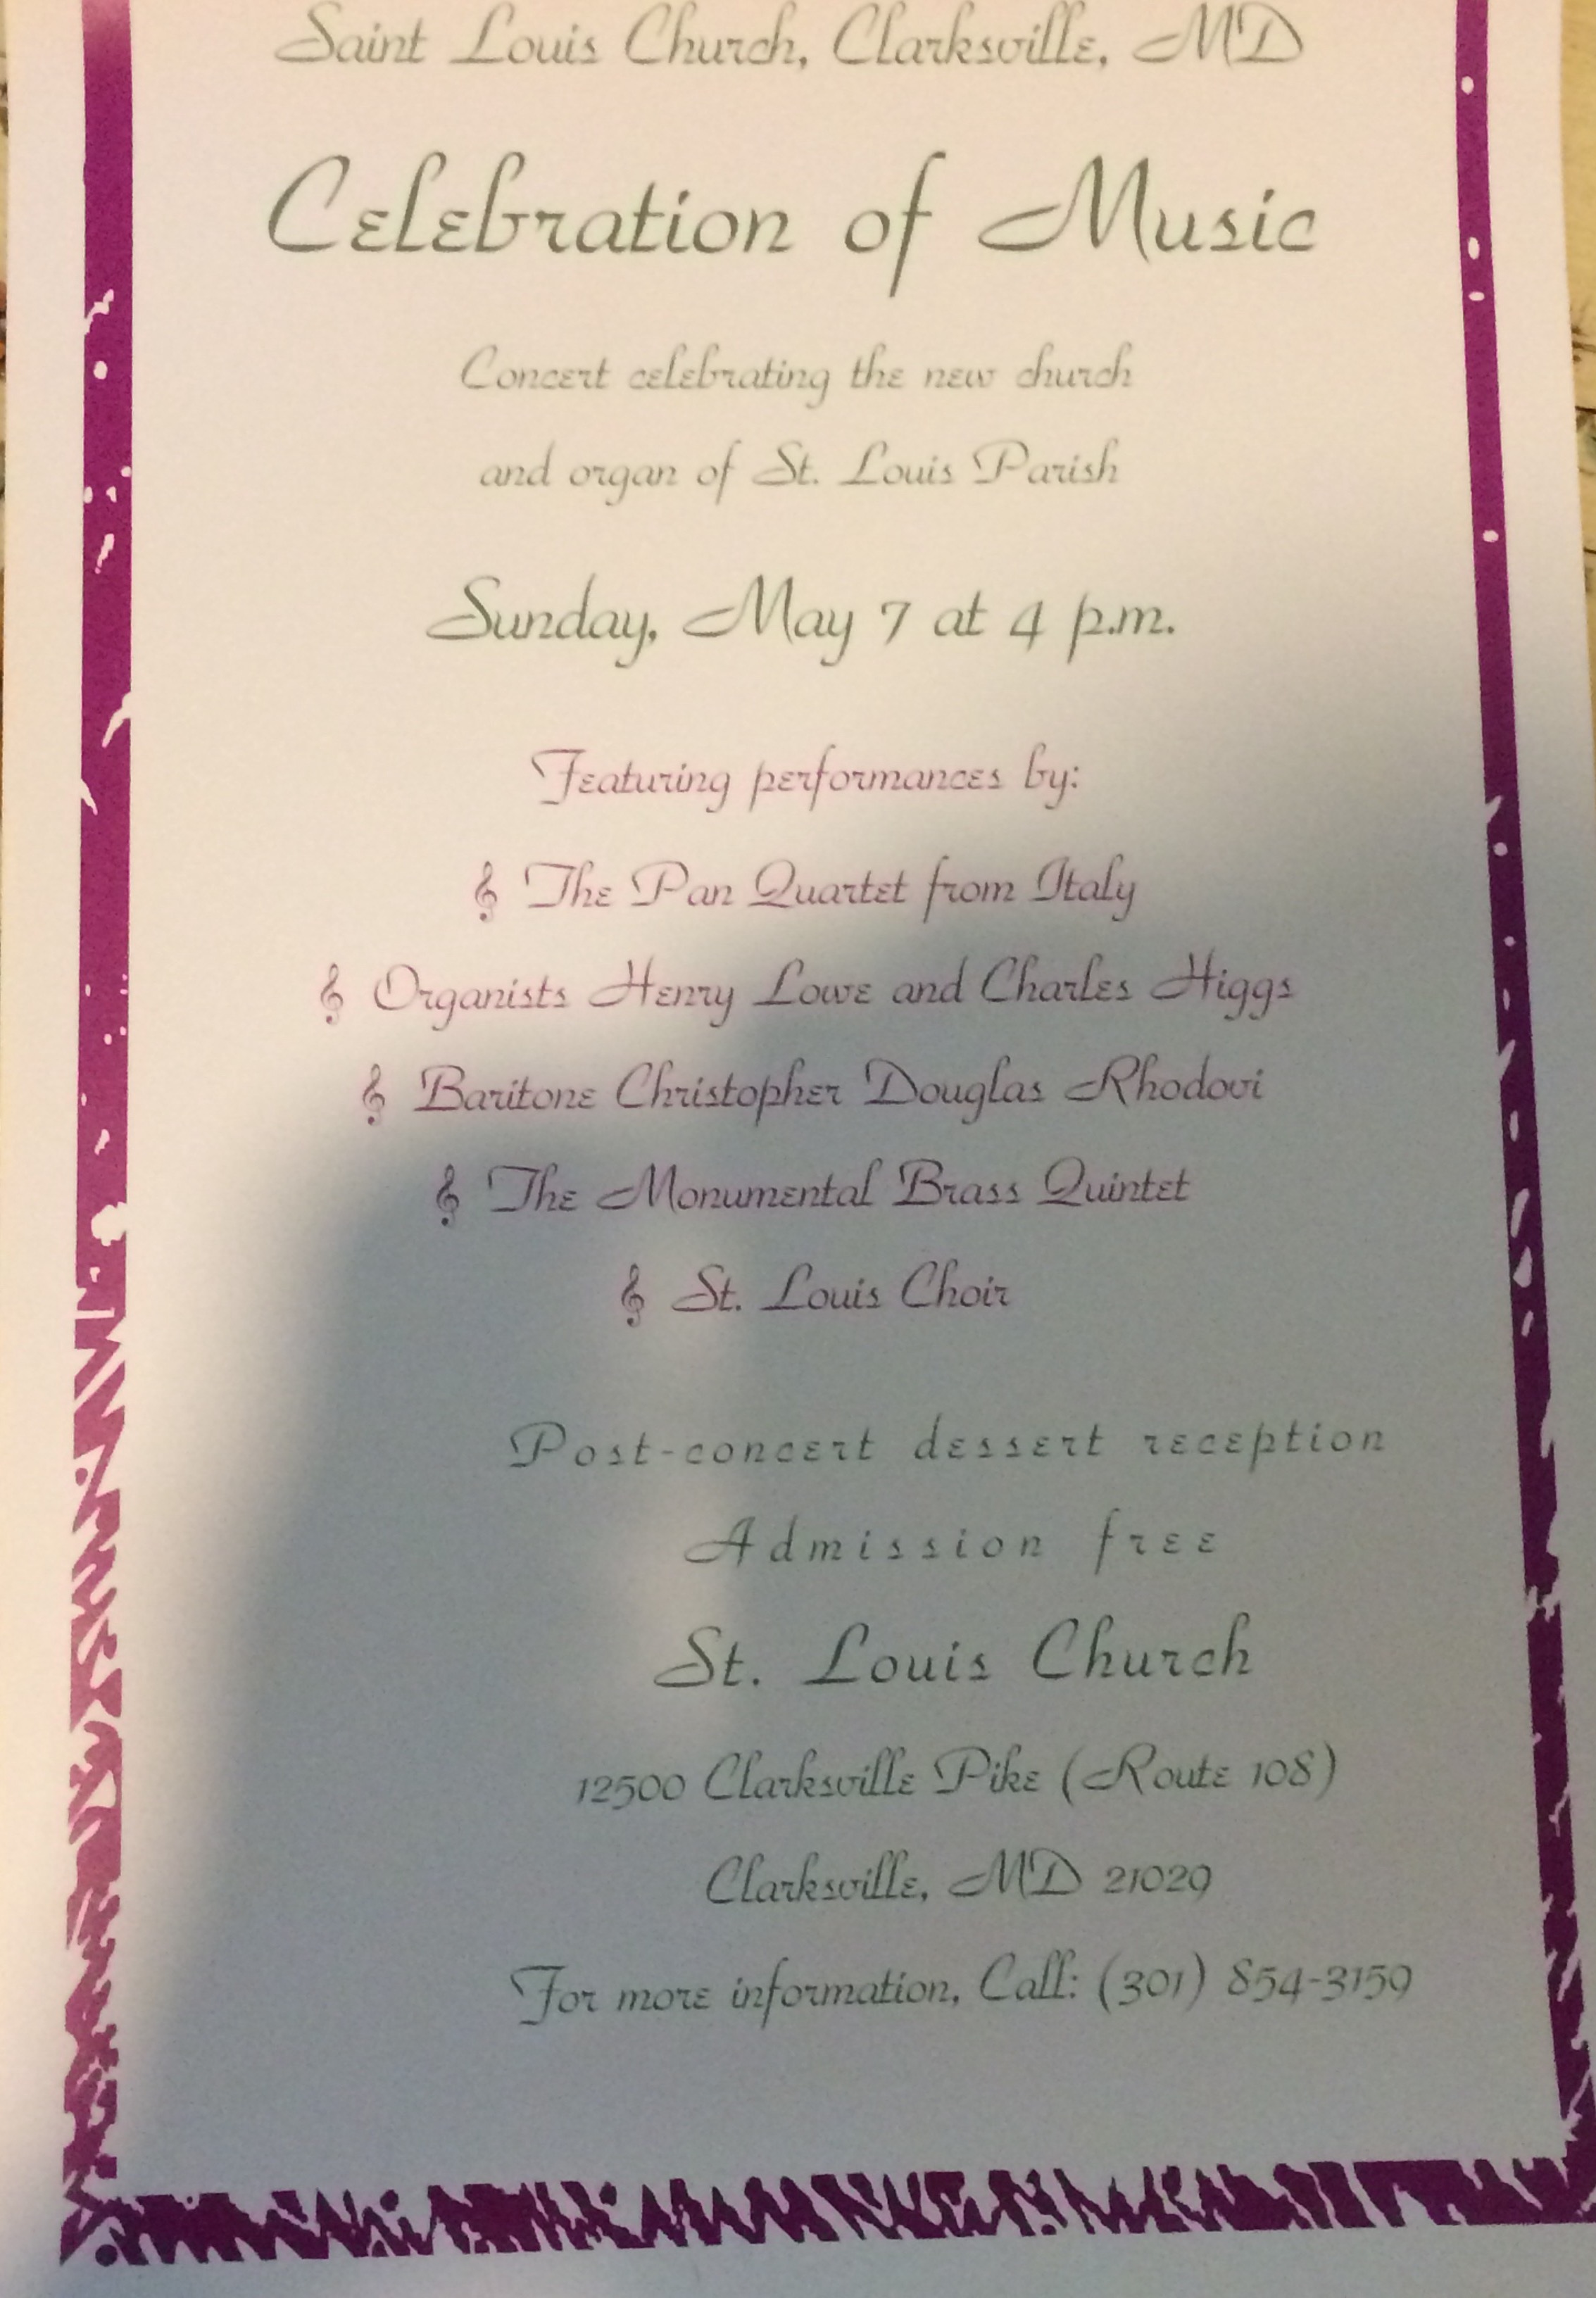 Saint Louis Church, Clarksville, MD
Celebration of Music
Concert celebrating the new church
and organ of St. Louis Parish
Sunday, May 7 at 4 p.m.
Featuring performances by:
The Pan Quartet from Italy
Organists Henry Lowe and Charles Higgs
Baritone Christopher Douglas Rhodovi
The Monumental Brass Quintet
St. Louis Choir
Post-concert dessert reception
Admission free
St. Louis Church
12500 Clarksville Pike (Route 108)
Clarksville, MD 21029
For more information, Call: (301) 854-3159